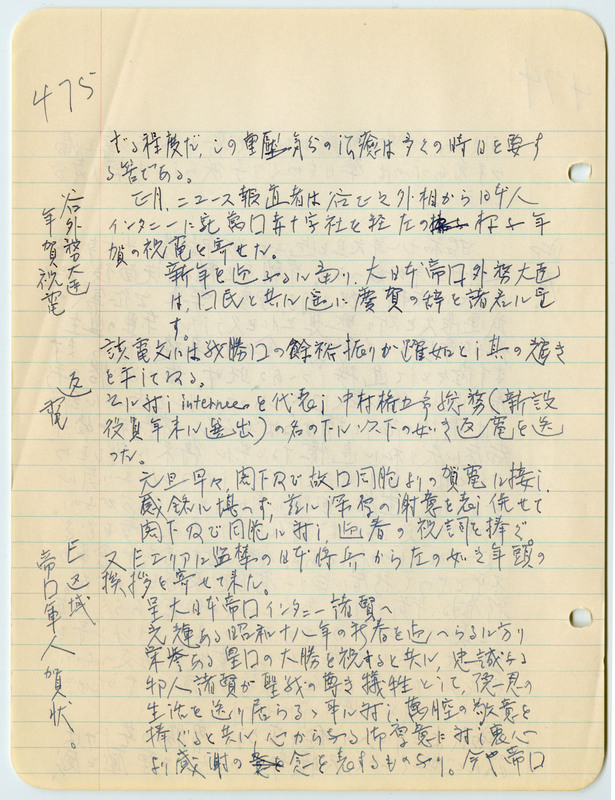 475
谷外務大臣
年賀祝電
返電
E区域
帝口軍人賀状。
ざる程度だ,この重壓気分の治癒は多くの時日を要す
る筈である。
正月,ニュース報道者は谷正之外相から日本人
インタニーに宛萬口赤十字社を経左の如き年
賀の祝電を寄せた。
新年を迎ふるに當り,大日本帝口外務大臣
は,口民と共に遥に慶賀の辞を諸君に呈
す。
該電文には戦勝口の餘裕振りが躍如とし其の輝き
を示してゐる。
之に対し internee を代表し 中村 総務(新設
役員年末に選出)の名の下に以下の如き返電を送
った。
元旦早々,閣下及び故口同胞よりの賀電に接し,
感銘に堪へず,茲に深厚の謝意を表し併せて
閣下及び同胞に対し,迎春の祝詞を捧ぐ。
又Eエリアに監禁の日本将兵から左の如き年頭の
挨拶を寄せて来た。
呈大日本帝口インタニー諸賢へ
光輝ある昭和十八年の新春を迎へらるに方り
栄誉ある皇口の大勝を祝すると共に,忠誠なる
邦人諸賢が聖戦の尊き犠牲として,
生活を送り居らるゝ事に対し,萬腔の敬意を
捧ぐると共に,心からなる御厚意に対し衷心
より感謝の念を表するものなり。今や帝口